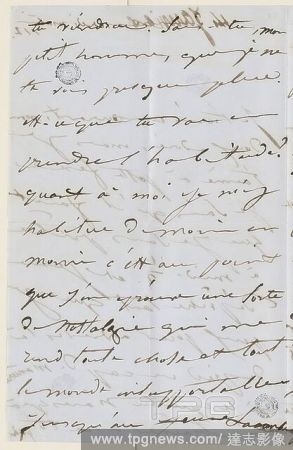 tu viendras. Sais-tu, mon
ptit homme, que je ne
te vois presque plus.
est-ce que tu vas en
prendre l'habitude?
quant à moi je m'y
habitue de moins en
moins c'est au point
que j'en éprouve une sorte
de nostalgie qui me
rend toute chose et tout
le monde insupportables
jusqu'au
TPG
www.tpgnews.com / 達志影像